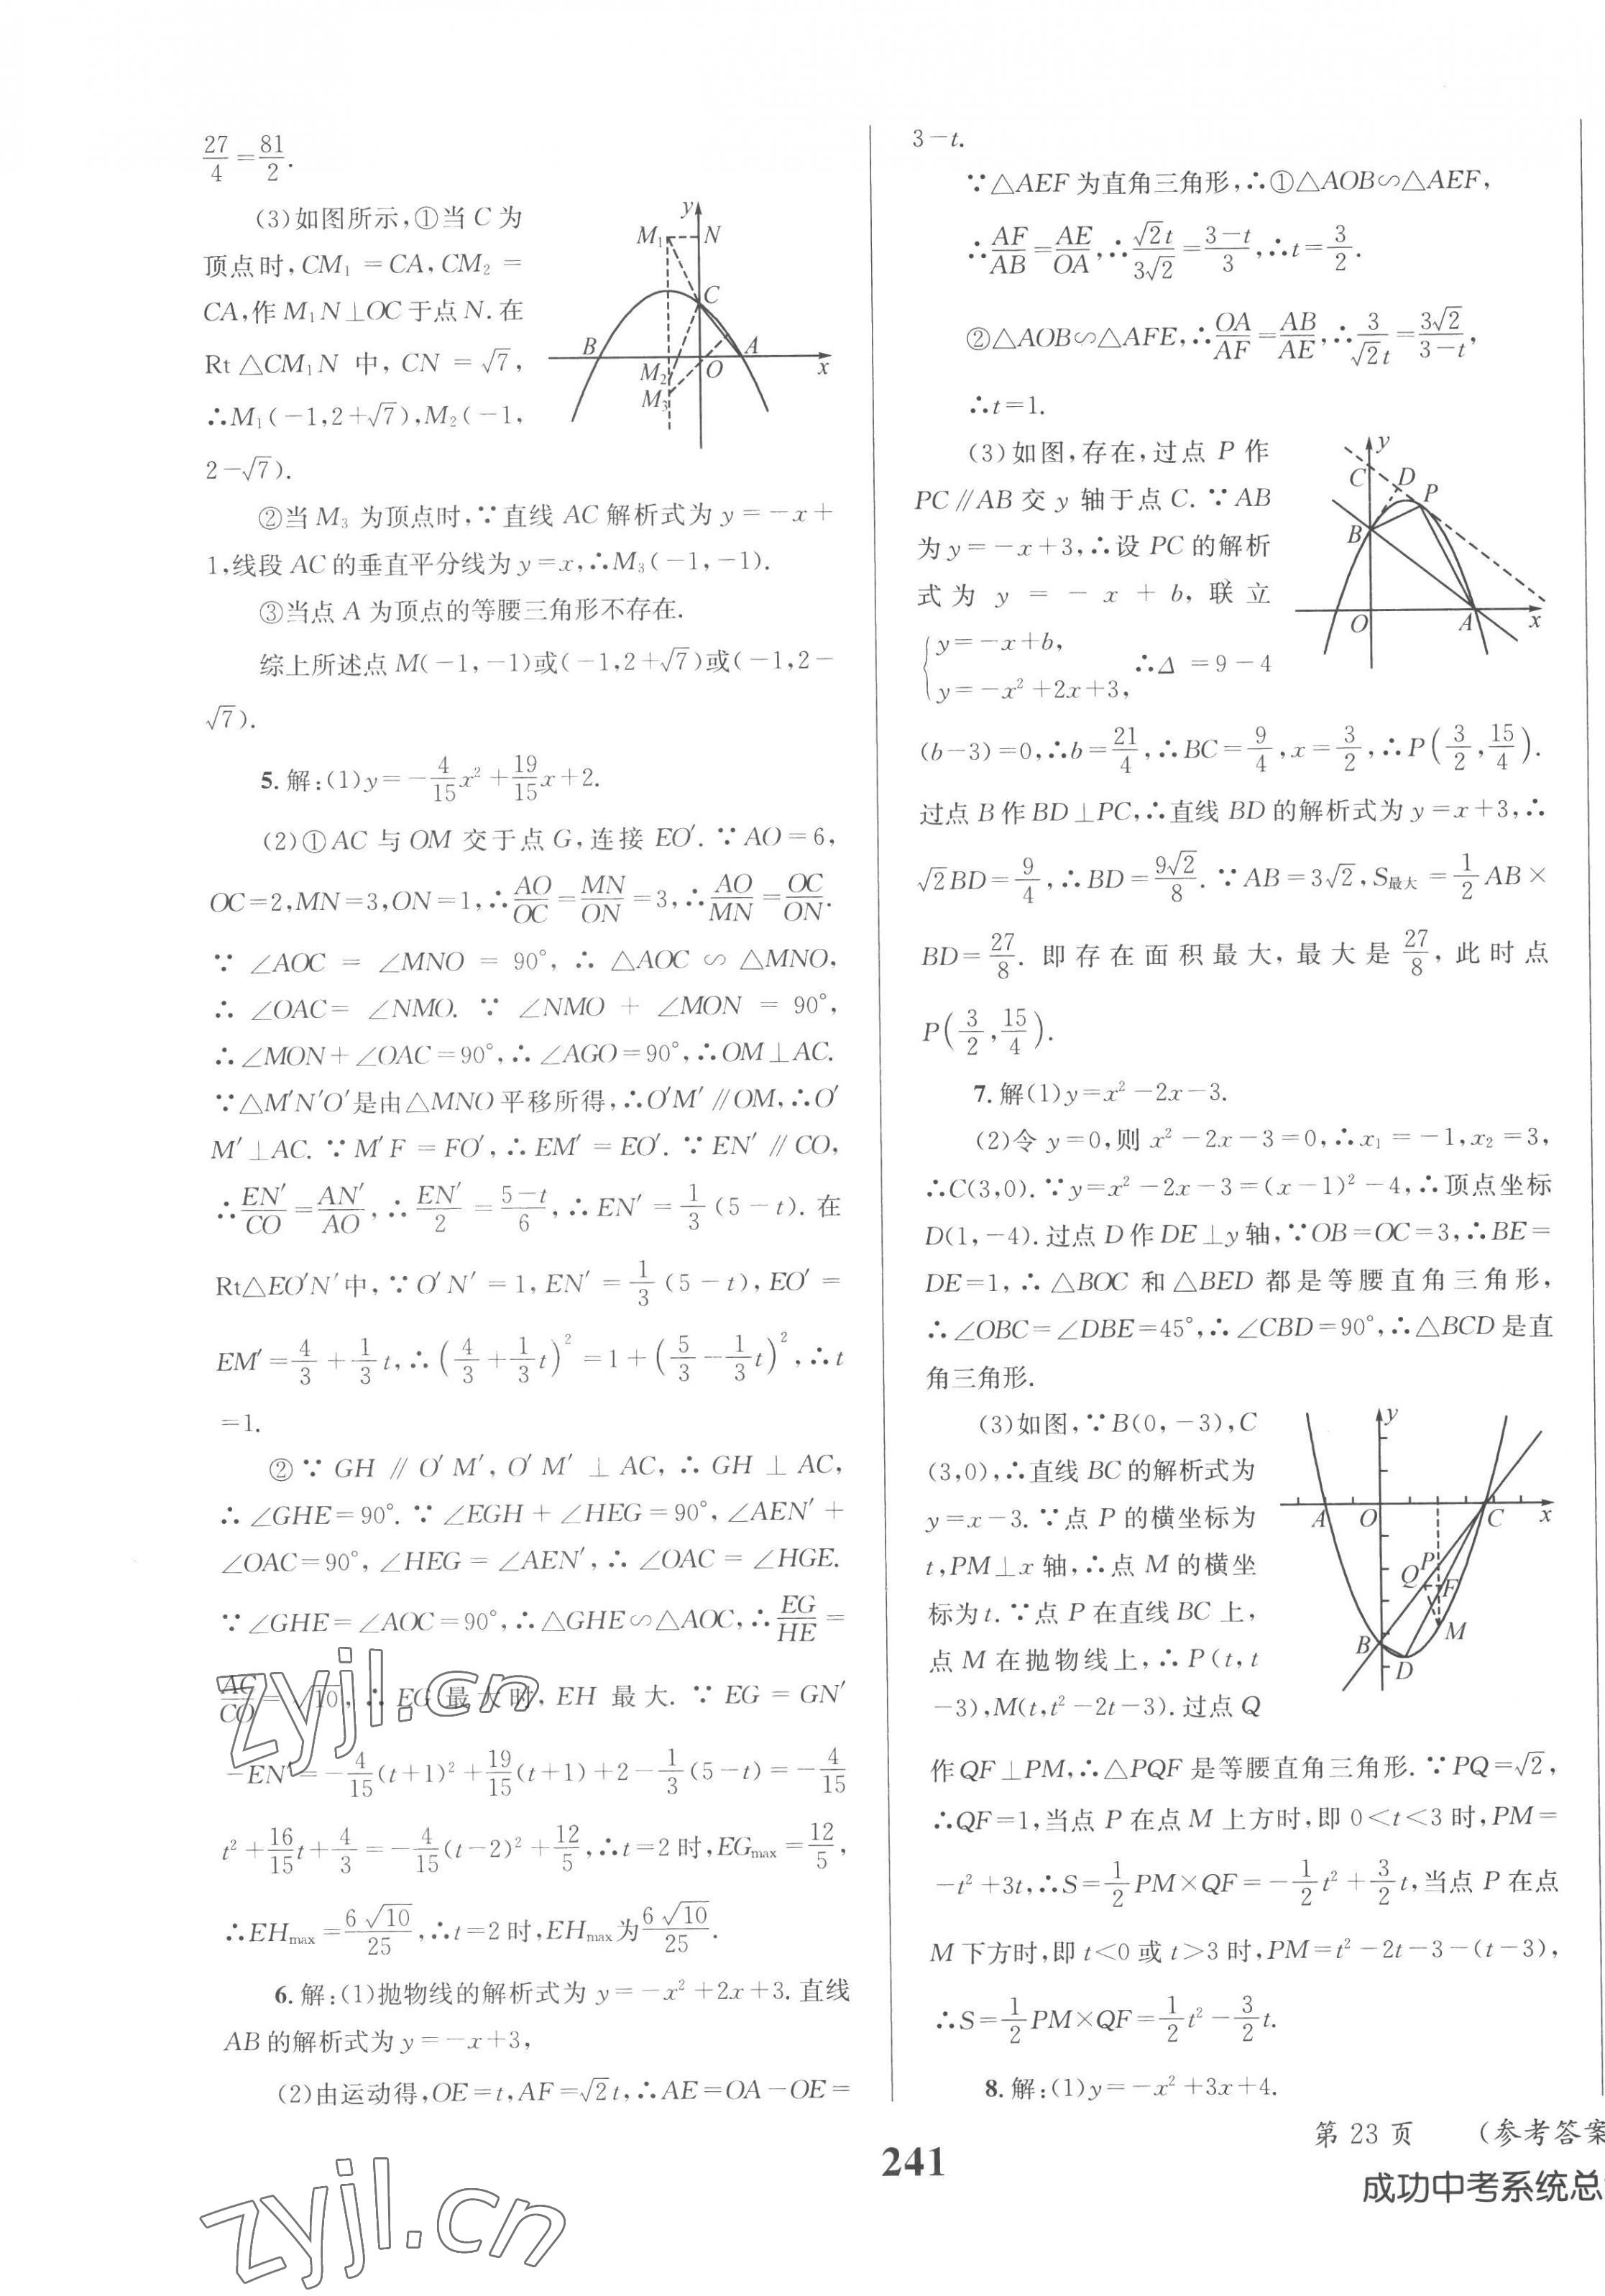 27/4=81/2.
(3)如图所示,①当C为
顶点时,CM₁=CA,CM₂=
CA,作M₁N⊥OC于点N.在
Rt△CM₁N中,CN=√7,
∴M₁(-1,2+√7),M₂(-1,
2-√7).
②当M₃为顶点时,∵直线AC解析式为y=-x+
1,线段AC的垂直平分线为y=x,∴M₃(-1,-1).
③当点A为顶点的等腰三角形不存在.
综上所述点M(-1,-1)或(-1,2+√7)或(-1,2-
√7).
y
M₁
N
C
B
A
M₂
O
x
M₃
5.解:(1)y=-4/15x²+19/15x+2.
(2)①AC与OM交于点G,连接EO′.∵AO=6,
OC=2,MN=3,ON=1,∴AO/OC=MN/ON=3,∴AO/MN=OC/ON.
∵∠AOC=∠MNO=90°,∴△AOC∽△MNO,
∴∠OAC=∠NMO.∵∠NMO+∠MON=90°,
∴∠MON+∠OAC=90°,∴∠AGO=90°,∴OM⊥AC.
∵△M′N′O′是由△MNO平移所得,∴O′M′∥OM,∴O′
M′⊥AC.∵M′F=FO′,∴EM′=EO′.∵EN′∥CO,
∴EN′/CO=AN′/AO,∴EN′/2=(5-t)/6,∴EN′=1/3(5-t).在
Rt△EO′N′中,∵O′N′=1,EN′=1/3(5-t),EO′=
EM′=4/3+1/3t,∴(4/3+1/3t)²=1+(5/3-1/3t)²,∴t
=1.
②∵GH∥O′M′,O′M′⊥AC,∴GH⊥AC,
∴∠GHE=90°.∵∠EGH+∠HEG=90°,∠AEN′+
∠OAC=90°,∠HEG=∠AEN′,∴∠OAC=∠HGE.
∵∠GHE=∠AOC=90°,∴△GHE∽△AOC,∴EG/HE=
AC/CO=√10,∴EG最大时,EH最大.∵EG=GN′
-EN′=-4/15(t+1)²+19/15(t+1)+2-1/3(5-t)=-4/15
t²+16/15t+4/3=-4/15(t-2)²+12/5,∴t=2时,EGmax=12/5,
∴EHmax=6√10/25,∴t=2时,EHmax为6√10/25.
6.解:(1)抛物线的解析式为y=-x²+2x+3.直线
AB的解析式为y=-x+3,
(2)由运动得,OE=t,AF=√2t,∴AE=OA-OE=
3-t.
∵△AEF为直角三角形,∴①△AOB∽△AEF,
∴AF/AB=AE/OA,∴√2t/3√2=(3-t)/3,∴t=3/2.
②△AOB∽△AFE,∴OA/AF=AB/AE,∴3/√2t=3√2/(3-t),
∴t=1.
(3)如图,存在,过点P作
PC∥AB交y轴于点C.∵AB
为y=-x+3,∴设PC的解析
式为y=-x+b,联立
{y=-x+b,
y=-x²+2x+3, ∴Δ=9-4
y
C
D
P
B
O
A
x
(b-3)=0,∴b=21/4,∴BC=9/4,x=3/2,∴P(3/2,15/4).
过点B作BD⊥PC,∴直线BD的解析式为y=x+3,∴
√2BD=9/4,∴BD=9√2/8.∵AB=3√2,S最大=1/2AB×
BD=27/8.即存在面积最大,最大是27/8,此时点
P(3/2,15/4).
7.解(1)y=x²-2x-3.
(2)令y=0,则x²-2x-3=0,∴x₁=-1,x₂=3,
∴C(3,0).∵y=x²-2x-3=(x-1)²-4,∴顶点坐标
D(1,-4).过点D作DE⊥y轴,∵OB=OC=3,∴BE=
DE=1,∴△BOC和△BED都是等腰直角三角形,
∴∠OBC=∠DBE=45°,∴∠CBD=90°,∴△BCD是直
角三角形.
(3)如图,∵B(0,-3),C
(3,0),∴直线BC的解析式为
y=x-3.∵点P的横坐标为
t,PM⊥x轴,∴点M的横坐
标为t.∵点P在直线BC上,
点M在抛物线上,∴P(t,t
-3),M(t,t²-2t-3).过点Q
y
A
O
C
x
P
Q
F
B
M
D
作QF⊥PM,∴△PQF是等腰直角三角形.∵PQ=√2,
∴QF=1,当点P在点M上方时,即0<t<3时,PM=
-t²+3t,∴S=1/2PM×QF=-1/2t²+3/2t,当点P在点
M下方时,即t<0或t>3时,PM=t²-2t-3-(t-3),
∴S=1/2PM×QF=1/2t²-3/2t.
8.解:(1)y=-x²+3x+4.
第23页 (参考答案
241
成功中考系统总
zyjl.cn
zyjl.cn